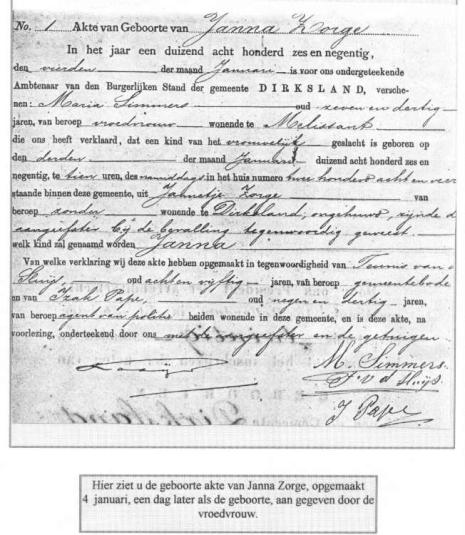 No. 1 Akte van Geboorte van Janna Zorge
In het jaar een duizend acht honderd zes en negentig,
den vierden der maand Januari is voor ons ondergeteekende
Ambtenaar van den Burgerlijken Stand der gemeente DIRKSLAND, versche-
nen: Maria Simmers oud zeven en dertig
jaren, van beroep vroedvrouw wonende te Melissant
die ons heeft verklaard, dat een kind van het vrouwelijk geslacht is geboren op
den derden der maand Januari duizend acht honderd zes en
negentig, te tien uren, des namiddags in het huis numero twee honderd acht en vier
staande binnen deze gemeente, uit Jannetje Zorge van
beroep zonder wonende te Dirksland, ongehuwd, zijnde d
aangeefster bij de bevalling tegenwoordig geweest
welk kind zal genaamd worden Janna.
Van welke verklaring wij deze akte hebben opgemaakt in tegenwoordigheid van Teunis van d
Sluijs oud acht en vijftig jaren, van beroep gemeentebode
en van Izak Pape, oud negen en dertig jaren,
van beroep agent van politie beiden wonende in deze gemeente, en is deze akte, na
voorlezing, onderteekend door ons met de aangeefster en de getuigen.
M. Simmers
T. v d Sluijs
I Pape
Hier ziet u de geboorte akte van Janna Zorge, opgemaakt
4 januari, een dag later als de geboorte, aan gegeven door de
vroedvrouw.